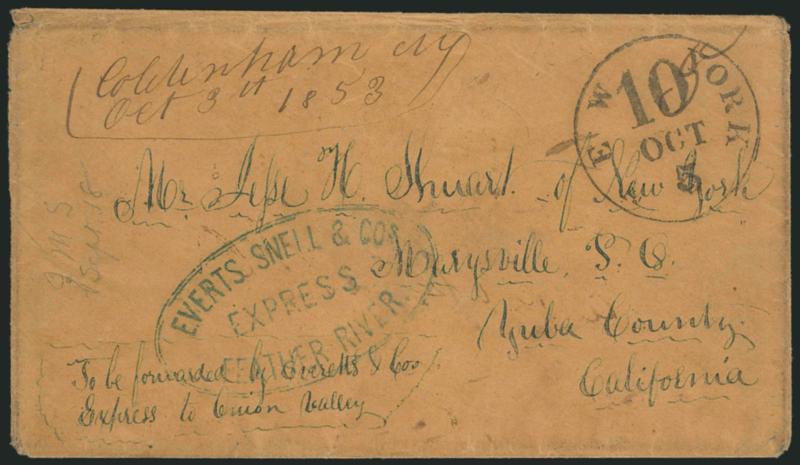 Coldenham NY
Oct 3th 1853
NEW YORK
10
OCT
5
Mr Jesse H. Stuart. of New York
Marysville, P. O.
Yuba County.
California
J M S
Sept 18
EVERTS, SNELL & COS
EXPRESS
FEATHER RIVER.
To be forwarded by Everetts & Cos
Express to Union Valley